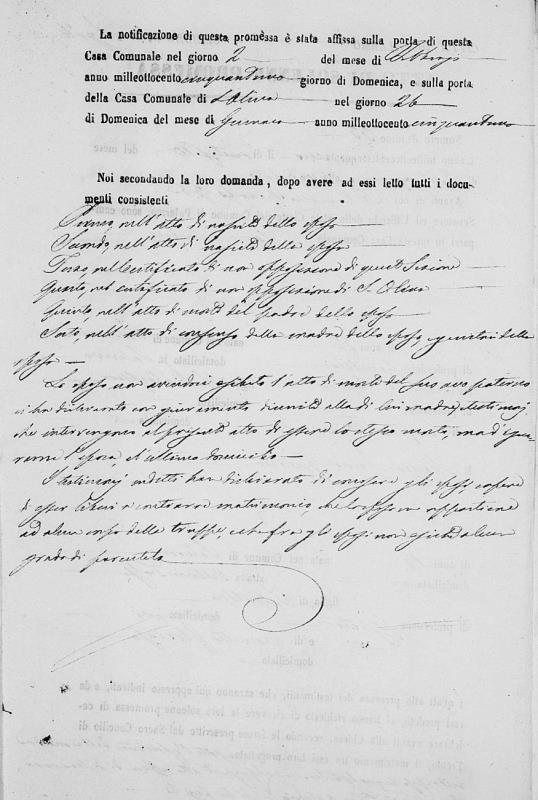 La notificazione di questa promessa è stata affissa sulla porta di questa
Casa Comunale nel giorno 2 del mese di
anno milleottocento cinquantuno giorno di Domenica, e sulla porta
della Casa Comunale di S. Oliva nel giorno 26
di Domenica del mese di Gennaro anno milleottocento cinquantuno
Noi secondando la loro domanda, dopo avere ad essi letto tutti i docu-
menti consistenti
Primo, nell'atto di nascita dello sposo
Secondo, nell'atto di nascita della sposa
Terzo nel certificato di non opposizione di questa Sezione
Quarto, nel certificato di non opposizione di S. Oliva
Quinto, nell'atto di morte del padre dello sposo
Sesto, nell'atto di consenso della madre dello sposo, e genitori della
sposa
Lo sposo non avendoci esibito l'atto di morte del suo avo paterno
ci ha dichiarato con giuramento di unita alla di lui madre, e testimonj
che intervengono al presente atto di essere lo stesso morto, ma d'igno-
rarne l'epoca, e l'ultimo domicilio
I testimonj indetti han dichiarato di conoscere gli sposi, sapere
di esser liberi a contrarre matrimonio che lo sposo non appartiene
ad alcun corpo delle truppe, e che fra gli sposi non esiste alcun
grado di parentela